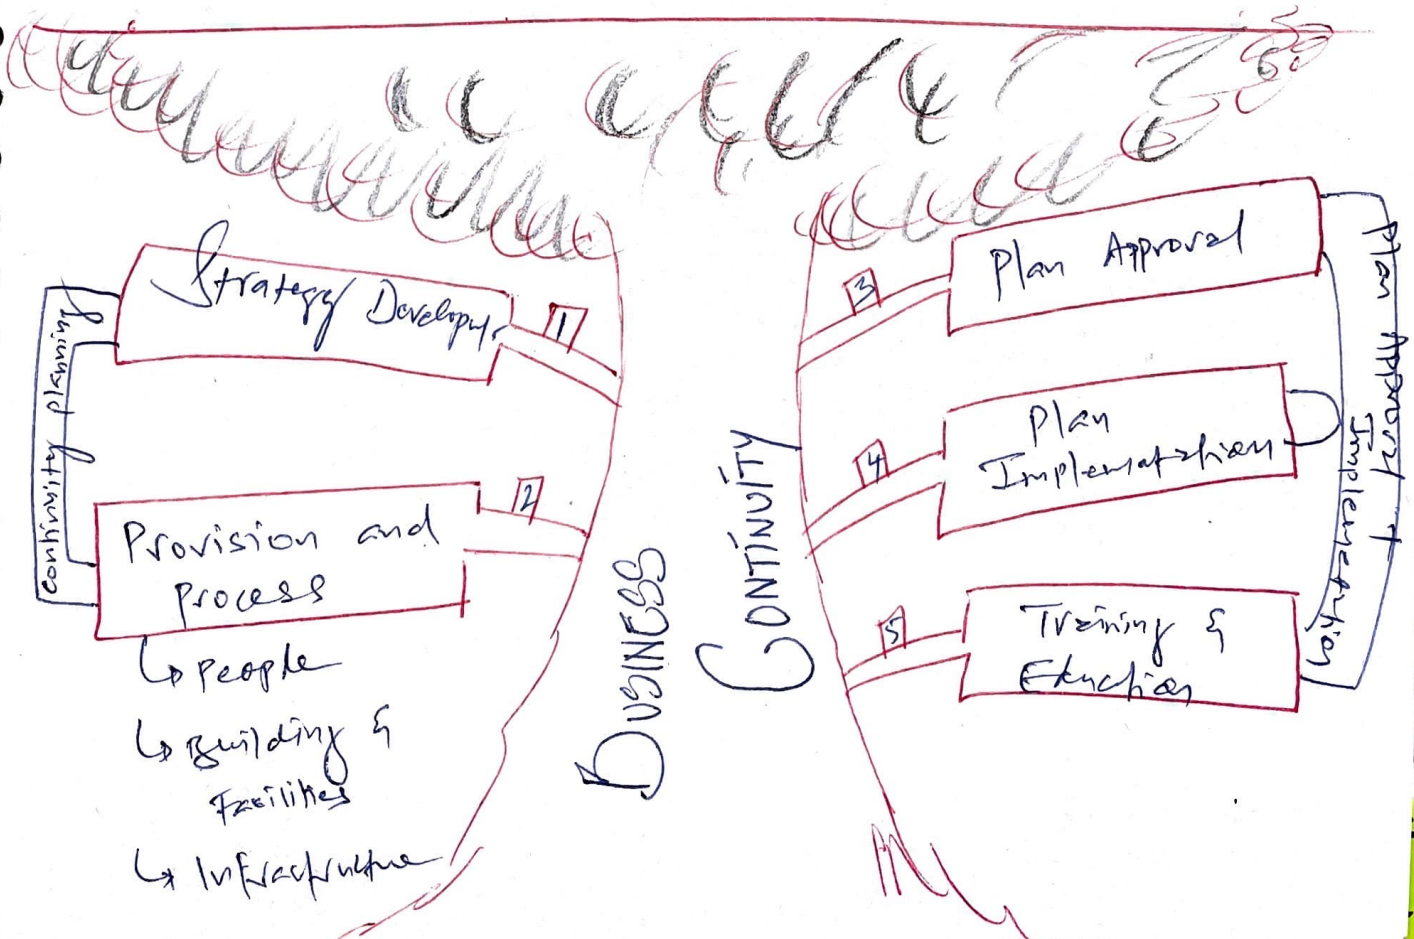 1
Strategy Developt
continuity planning
2
Provision and
process
↳ People
↳ Building &
Facilities
↳ Infrastructure
BUSINESS
CONTINUITY
3
Plan Approval
4
Plan
Implementation
5
Training &
Education
Plan Approval +
Implementation